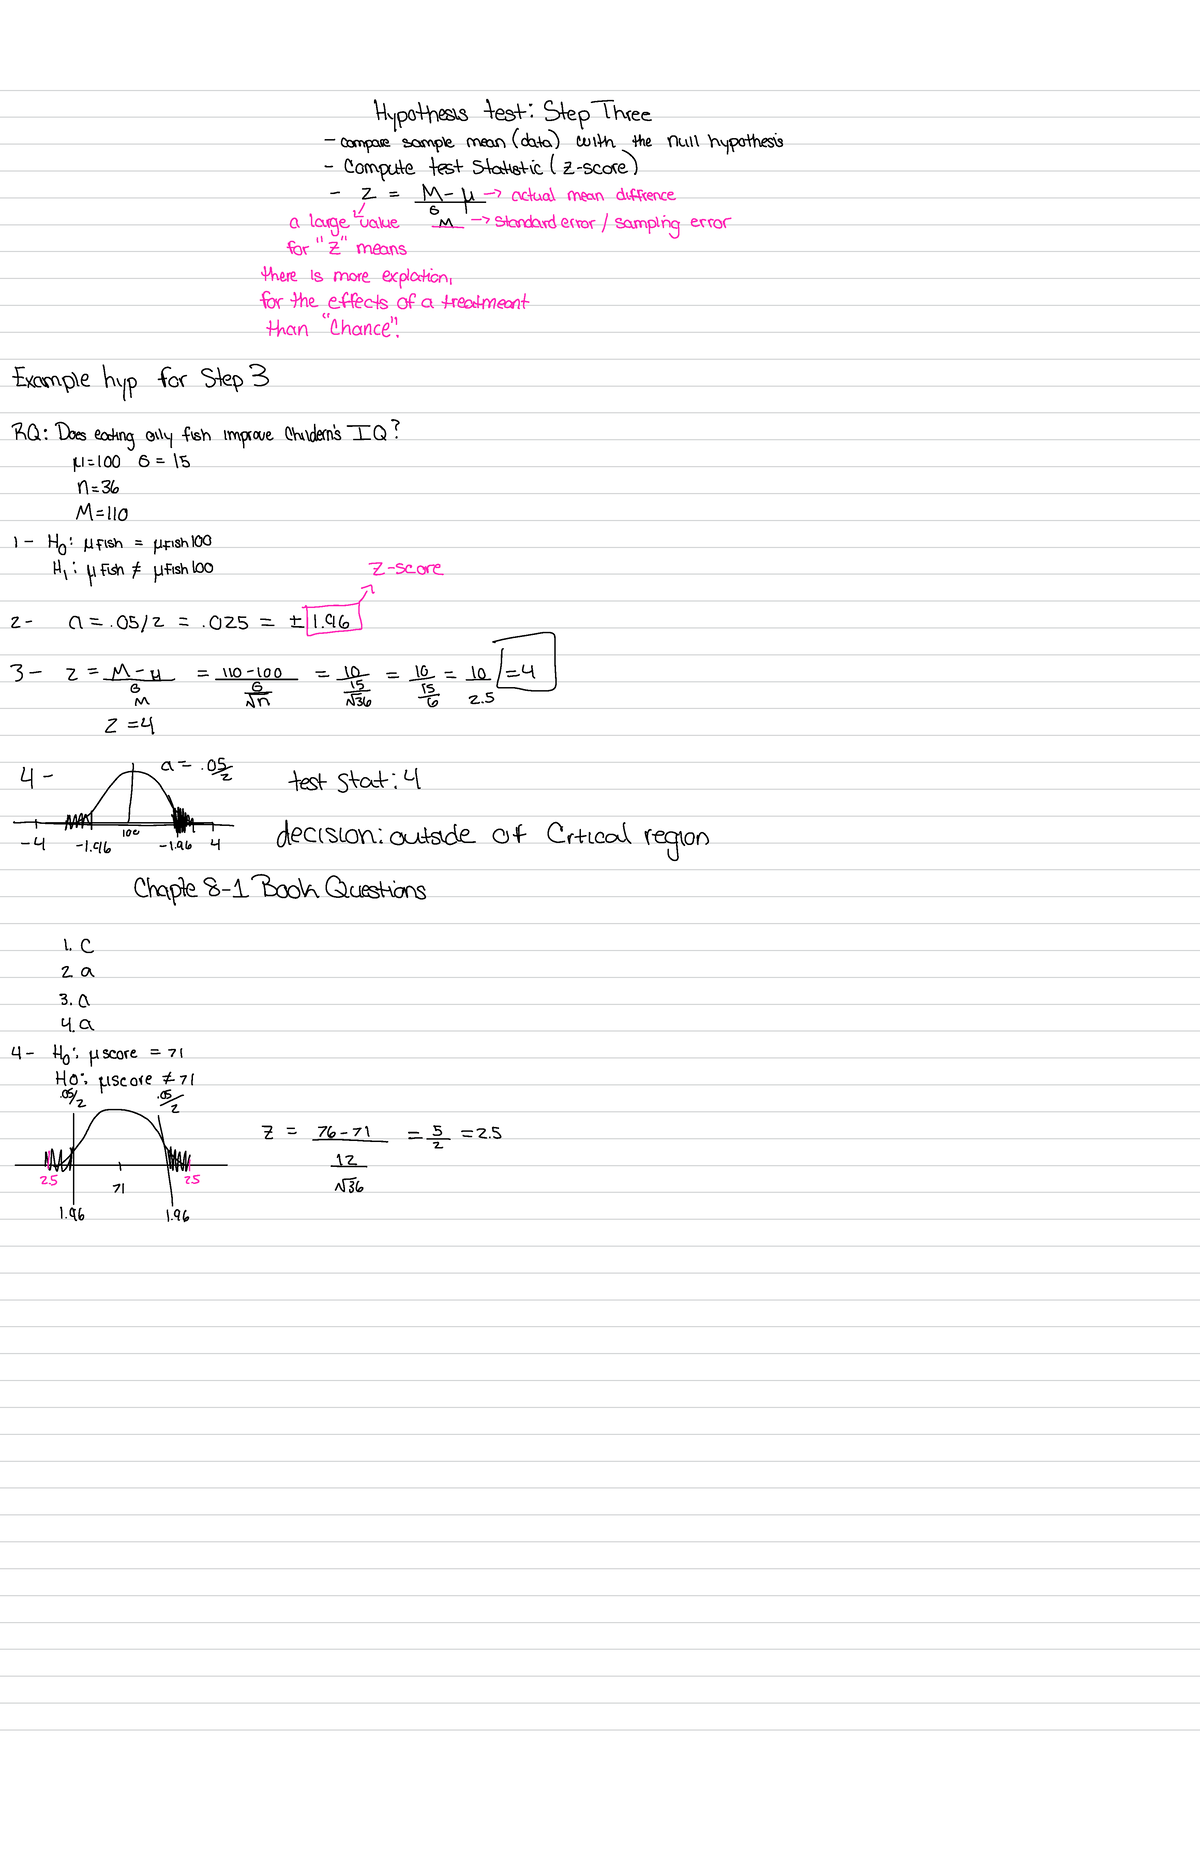 Hypothesis test: Step Three
- compare sample mean (data) with the null hypothesis
- Compute test Statistic (z-score)
- z = M-μ → actual mean diffrence
a large value σ M → Standard error / sampling error
for "Z" means
there is more explation,
for the effects of a treatmeant
than "Chance".
Example hyp for Step 3
RQ: Does eating oily fish improve Childern's IQ?
μ=100 σ = 15
n=36
M=110
1- H₀: μfish = μfish 100
H₁: μfish ≠ μfish 100
z-score
2- a = .05/2 = .025 = ± 1.96
3- z = M-μ / σ M = 110-100 / σ/√n = 10 / 15/√36 = 10 / 15/6 = 10 / 2.5 = 4
z = 4
4- a = .05/2 test stat: 4
100
-4 -1.96 -1.96 4 decision: outside of Crtical region
Chapte 8-1 Book Questions
1. C
2 a
3. a
4. a
4- H₀: μscore = 71
H0: μscore ≠ 71
.05/2 .05/2
z = 76-71 / 12/√36 = 5/2 = 2.5
2.5 71 2.5
1.96 1.96